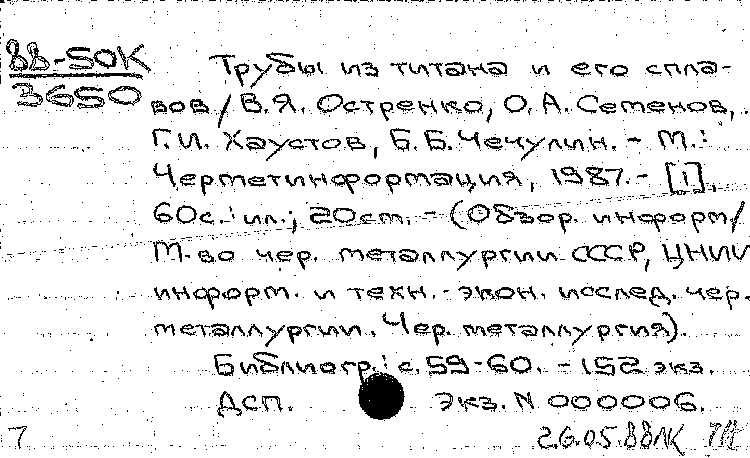 88-50К
3650
Трубы из титана и его спла-
вов / В.Я. Остренко, О.А. Семенов,
Г.И. Хаустов, Б.Б. Чечулин. - М.:
Черметинформация, 1987. - [1],
60с.: ил.; 20см. - (Обзор. информ /
М-во чер. металлургии СССР, ЦНИИ
информ. и техн.-экон. исслед. чер.
металлургии. Чер. металлургия).
Библиогр.: с. 59-60. - 152 экз.
ДСП. Экз. N 000006.
7 26.05.88ЛК